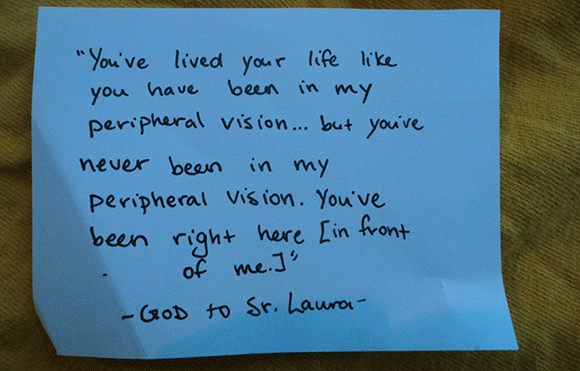 "You've lived your life like
you have been in my
peripheral vision... but you've
never been in my
peripheral vision. You've
been right here [in front
of me.]"
-GOD to Sr. Laura-